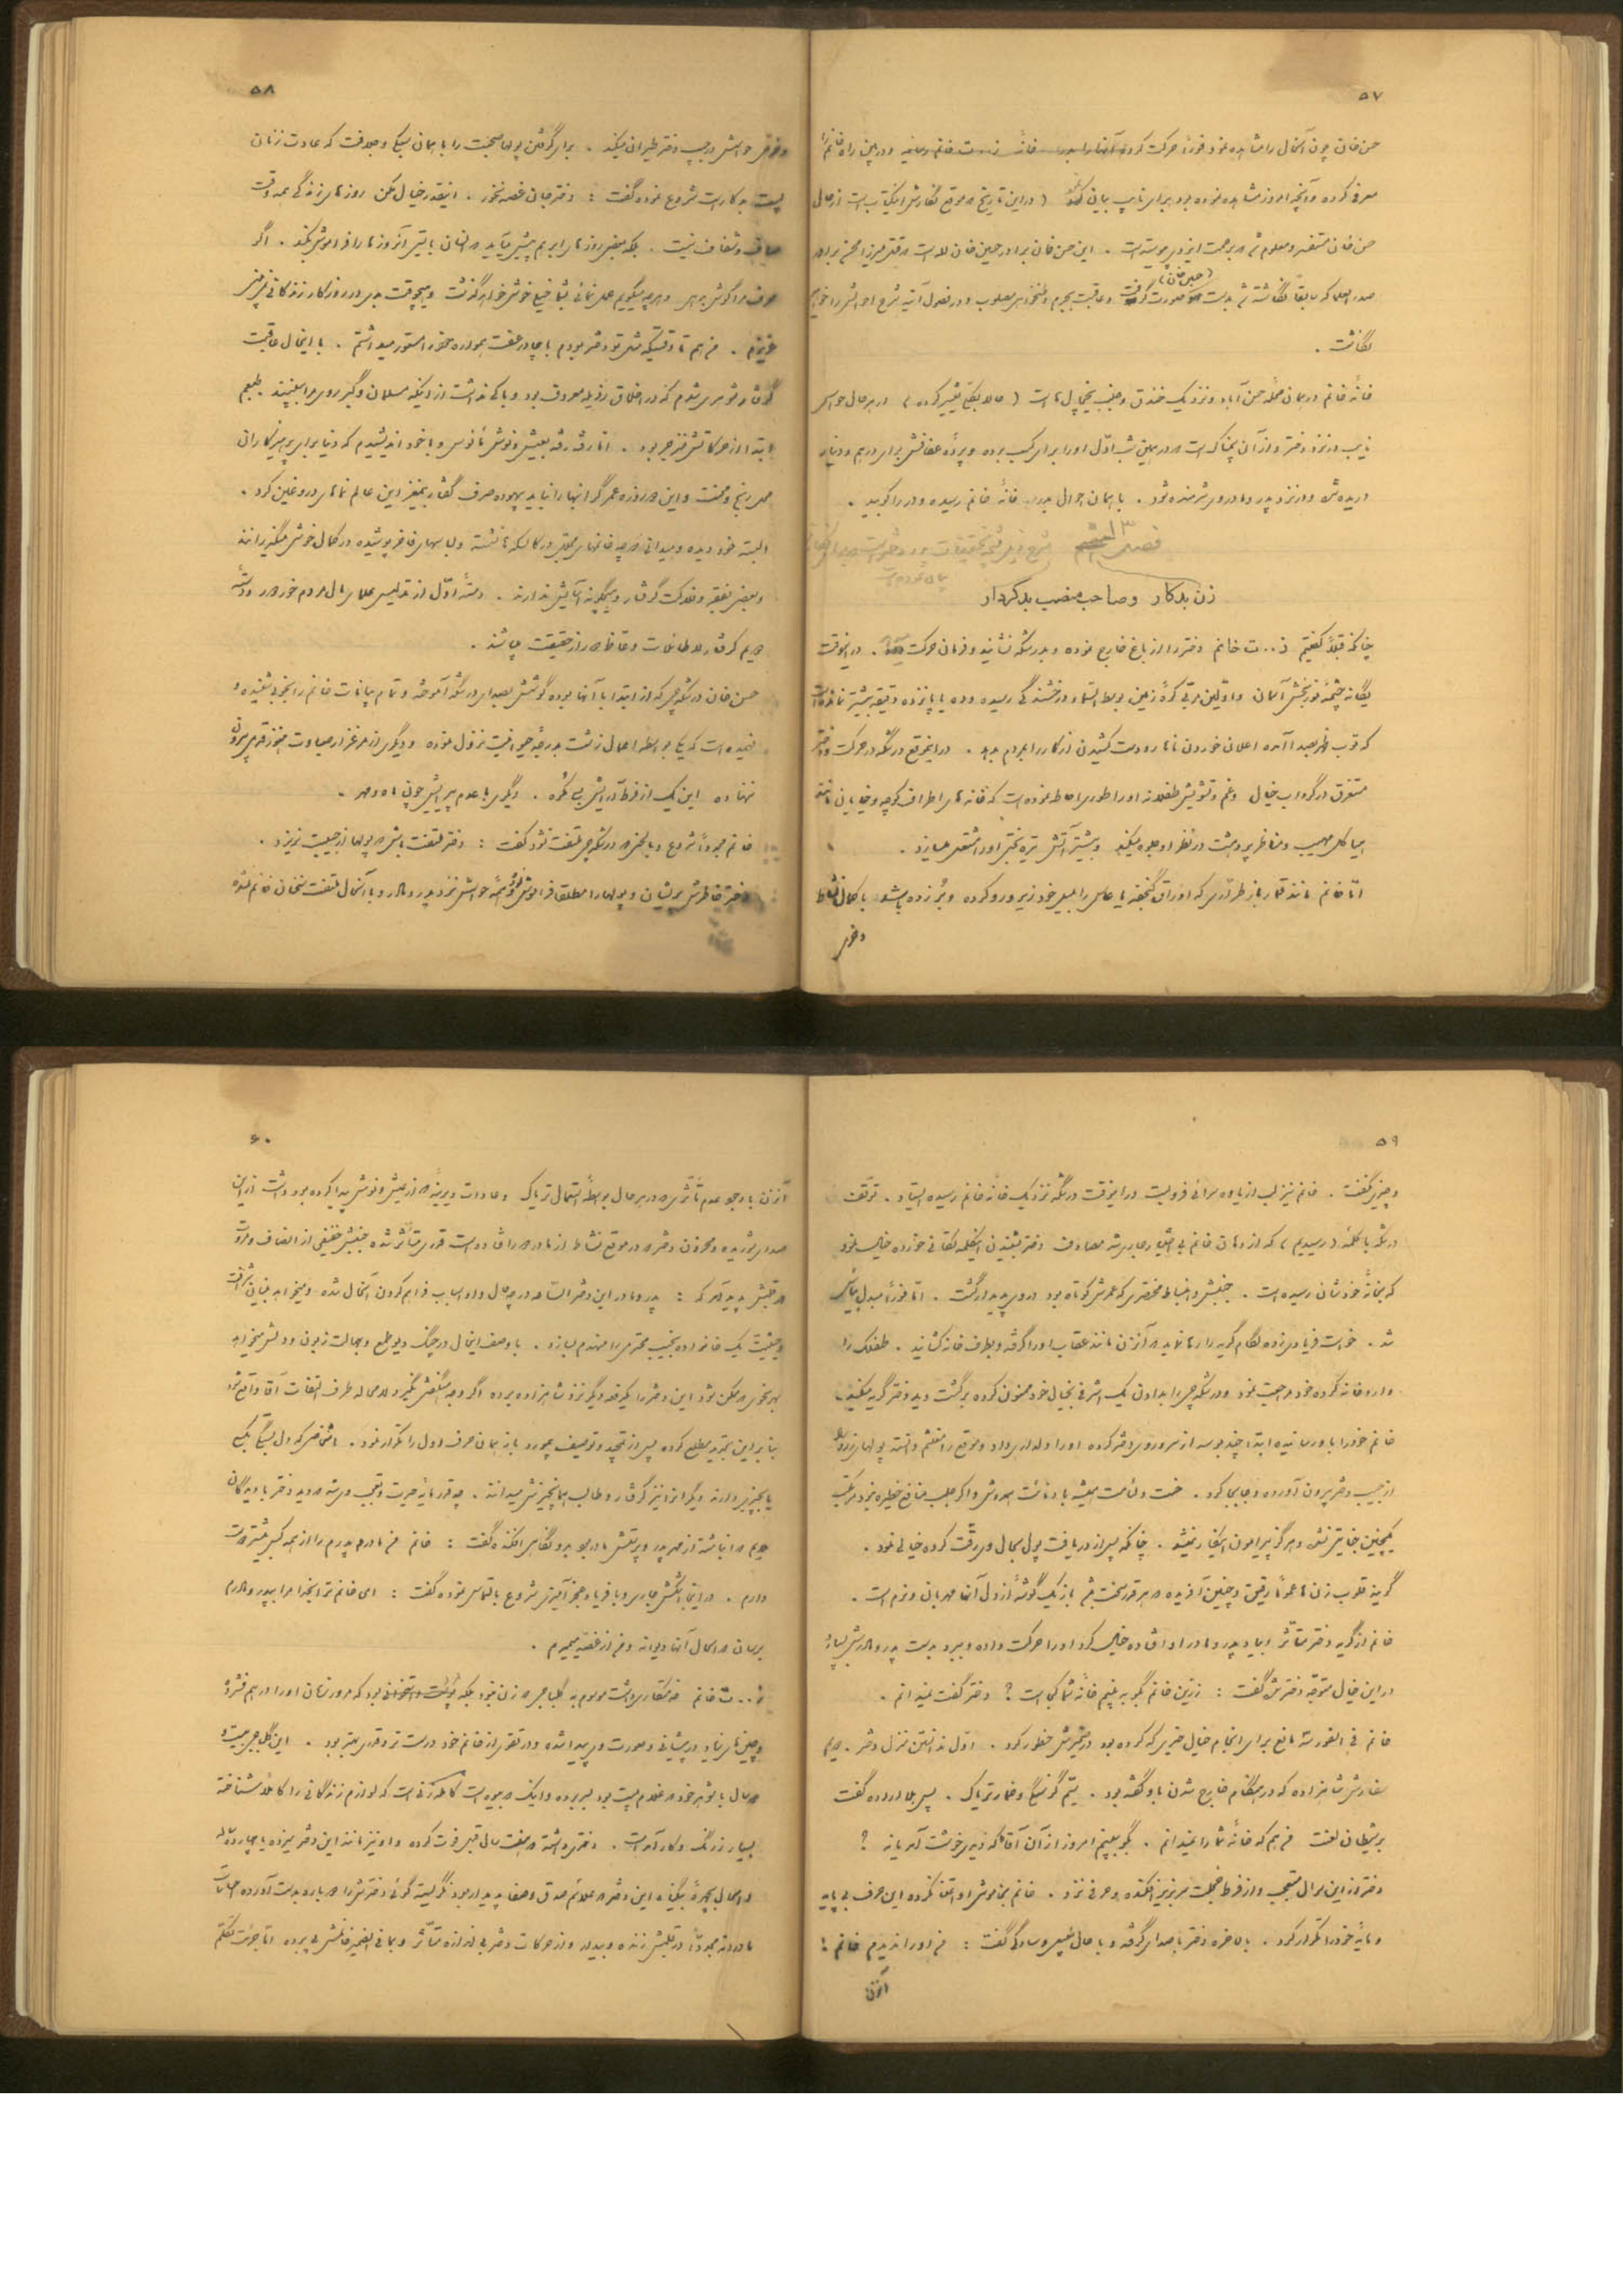 ۵۷
حسن خان چون آنحال را مشاهده نمود فوراً حرکت کرده آنها را بدر خانه ز..ت خانم رسانید و در بین راه خانم را
معرفی کرده و آنچه امروز مشاهده نموده بود برای نایب بیان نمود ( در این تاریخ که موقع نگارش اینکتاب است از حال
حسن خان مستفسر و معلوم شد برحمت ایزدی پیوسته است . این حسن خان برادر حسین خان لله است که قتل میرزا محسن برادر
صدر العلما که سابقاً نگاشته شد بدست (حسین خان) صورت گرفت و عاقبت بجرم خود مصلوب و در فصول آتیه شرح احوالش را خواهیم
نگاشت .
خانهٔ خانم در همان محلهٔ حسن آباد و نزدیک خندق و جنب یخچال ها است ( حالا بکلی تغییر کرده ) در هر حال حواس
نایب در نزد دختر و از آن بیمناک است که در همین شب اول او را برای کسب برده و پردهٔ عفافش برای درهم و دینار
دریده شده و در نزد پدر و مادر وی شرمنده شود . با همان احوال بدر خانهٔ خانم رسیده و در را کوبید .
فصل ۱۳
زن بدکار و صاحب منصب بدکردار
چنانکه قبلاً گفتیم ز..ت خانم دختر را از باغ خارج نموده و بدرشکه نشانید و فرمان حرکت داد . در اینوقت
یگانه چشمهٔ نوربخش آسمان و اولین مربی کرهٔ زمین بوسط السماء درخشندگی رسیده و ده یا پانزده دقیقه بیشتر نمانده است
که توپ ظهر بصدا آمده اعلان خوردن ناهار و دست کشیدن از کار را بمردم بدهد . در اینموقع درشکه در حرکت و دختر
مستغرق در گرداب خیال و غم و تشویش طفلانه او را طوری احاطه نموده است که خانه های اطراف کوچه و خیابان مانند
هیاکل مهیب و مناظر پر وحشت در نظر او جلوه میکند و بیشتر آتش تیره بختی او را مشتعل میسازد .
امّا خانم مانند قمار باز طراری که اوراق گنجفه یا طاس را بمیل خود زیر و رو کرده و بُرد زده باشد با کمال نشاط
دختر
۵۸
دختر حواسش در جیب دختر طیران میکند . برای گرفتن پولها صحبت را با بیان سبکی و جلافت که عادت زنان
پست بدکار است شروع نموده گفت : دختر جان غصه نخور . اینقدر خیال مکن روزهای زندگی همه وقت
صاف و شفاف نیست . بلکه بعضی روزهای ابر هم پیش میآید که انسان بایستی آنروزها را فراموش نکند . اگر
حرف مرا گوش بدهی و هر چه میگویم عمل نمائی بشما خیلی خوش خواهد گذشت و هیچوقت بدی در روزگار زندگانی نمی بینی
عزیزم . من هم تا وقتیکه مثل تو دختر بودم با چادر عفت همواره خود را مستور میداشتم . با اینحال عاقبت
گرفتار شوهری شدم که در اخلاق رذیله معروف بود و باکی نداشت از اینکه مسلمان و گبر روی مرا ببینند . طبعم
ابتدا از حرکاتش منزجر بود . امّا رفته رفته بعیش و نوش مأنوس و با خود اندیشیدم که دنیا برای پرهیزکاران
محل رنج و محنت و این دو روزه عمر گرانبها را نباید بیهوده صرف گفتار بیمغز این عالم نماهای دروغین کرد .
البته خود دیده و میدانی که چه خانمهای مجللی در کالسکه ها نشسته و لباسهای فاخر پوشیده در کمال خوشی میگذرانند
و بعضی بفقر و فلاکت گرفتار و هیچگونه آسایش ندارند . دستهٔ اول از تدلیس عمل بمال مردم خور و دستهٔ
دویم گرفتار لاطائلات وعاظ دور از حقیقت میباشند .
حسن خان درشکه چی که از ابتدا با آنها بوده گوشش بصدای درشکه آموخته و تمام بیانات خانم را بخوبی شنیده و
فهمیده است که یکی بواسطهٔ اعمال زشت بدرجهٔ حیوانیت نزول نموده و دیگری از مرغزار صباوت هنوز قدم بیرون
ننهاده این یک از فرط آرایش بی نمک شده . دیگری با عدم پیرایش چون ماه دو هفته .
خانم مجدداً شروع و با لحنی که درشکه چی ملتفت نشود گفت : دختر ملتفت باش که پولها از جیبت نریزد .
دختر خاطرش پریشان و پولها را مطلقاً فراموش نموده و همهٔ حواسش نزد پدر و مادر و با آنحال ملتفت سخنان خانم نشده
۵۹
و چیزی نگفت . خانم نیز لب از یاوه سرائی فرو بست در اینوقت درشکه نزدیک خانهٔ خانم رسیده ایستاد . توقف
درشکه با کلمهٔ ( رسیدیم ) که از دهان خانم بی اختیار جاری شد مصادف دختر بشنیدن اینکلمه تکانی خورده خیال نمود
که بخانهٔ خودشان رسیده است . جنبش و انبساط مختصری که عمرش کوتاه بود در وی پدیدار گشت . اما فوراً مبدل بیأس
شد . خواست فریادی زده لگام گریه را رها نماید که آنزن مانند عقاب او را گرفته و بطرف خانه کشانید . طفلک را
وارد خانه کرده خود مراجعت نمود و درشکه چی را با دادن یک اشرفی بخیال خود ممنون کرده برگشت دید دختر گریه میکند
خانم خود را باو رسانیده ابتدا چند بوسه از سر و روی دختر کرده او را دلداری داد و موقع را مغتنم دانسته پولهای زرد را
از جیب دختر بیرون آورده و جابجا کرد . خست و لئامت همیشه با دنائت همدوش و اگر جلب منافع خطیره نبود مرتکب
یکچنین جنایتی نشده و هرگز پیرامون اینکار نمیگشت . چنانکه پس از دریافت پول بحال وی رقّت کرده خیالی نمود .
گویند قلوب زن ها عموماً رقیق و چنین آفریده که هر قدر سخت باشد باز یک گوشهٔ از دل آنها مهربان و نرم است .
خانم از گریه دختر متأثر و بیاد پدر و مادر او افتاده خیال کرد او را حرکت داده و ببرد بدست پدر و مادرش بسپارد
در این خیال متوجه دختر شده گفت : نازنین خانم بگو به بینم خانهٔ شما کجاست ؟ دختر گفت نمیدانم .
خانم فی الفور سه مانع برای انجام خیال خیری که کرده بود در مخیله اش خطور کرد . اول ندانستن منزل دختر . دویم
سفارش شاهزاده که در هنگام خارج شدن باو گفته بود . سیّم گرسنگی و خمار تریاک . پس سر بالا داده گفت
بر شیطان لعنت من هم که خانهٔ شما را نمیدانم . بگو ببینم امروز از آن آقا که دیدی خوشت آمد یا نه ؟
دختر از این سؤال متعجب و از فرط خجلت سر بزیر افکنده و حرفی نزد . خانم بخاموشی او اعتنا نکرده این حرف بی پایه
و مایهٔ خود را تکرار کرد . بالاخره دختر با صدای گرفته و با حالی طبیعی و سادگی گفت : من او را ندیدم خانم !
آنزن
۶۰
آنزن با وجود عدم تأثری که در هر حال بواسطهٔ استعمال تریاک و عادات دیرینهٔ که از عیش و نوش پیدا کرده بود داشت از این
صدای شوریده و محزون دختر که در موقع نشاط از مادر دور افتاده است قدری متأثر شده جنبش خفیفی از انصاف و مروّت
در قلبش پدید آمد که : پدر و مادر این دختر الساعه در چه حال و او اسباب فراهم کردن آنحال شده و میخواهد بنیان شرافت
و حیثیت یک خانواده نجیب محترمی را منهدم سازد . با وصف اینحال در چنگ دیو طمع و جهالت زبون و دلش میخواهد
بهر نحوی که ممکن شود این دختر را یکدفعه دیگر نزد شاهزاده برده اگر وجه هنگفتی نگیرد لا محاله طرف التفات آقا واقع شود
بنابراین بمقدمه مطلع کرده پس از تمجید و توصیف بیمورد باز همان حرف اول را تکرار نمود . اشخاصی که دل بستگی بکسی
یا بچیزی دارند دیگران را نیز گرفتار و طالب همانچیزش میدانند . چقدر مایهٔ حیرت و تعجب وی شد که دید دختر با دیدگان
حریم که انباشته از مهر پدر و پر تلاش مادر بود بر او نگاهی افکنده گفت : خانم من مادرم پدرم را از همه کس بیشتر دوست
دارم . در اینجا اشکش جاری و با فریاد عجز آمیزی شروع بالتماس نموده گفت : ای خانم ترا بخدا مرا بپدر و مادرم
برسان که الحال آنها دیوانه و من از غصه میمیرم .
ز..ت خانم خدمتکاری داشت موسوم به گلباجی که زن نبود بلکه پوست و استخوانی بود که مرور زمان او را در هم فشرده
و چین های زیاد در پیشانی و صورت وی پیدا شده و در تقوی از خانم خود درست تر و قدری بهتر بود . این گلباجی بیست و
دو سال با شوهر خود که غلام پست بود بسر برده و اینک که بیوه است کامله زنیست که لوازم زندگانی را کاملاً شناخته
بسیار زرنگ و کار آمد است . دختری داشته که هفت سال قبل فوت کرده و او نیز مانند این دختر سیزده یا چهارده ساله
و الحال بچهرهٔ بیگناه این دختر که علائم صدق و صفا پدیدار بود نگریسته گوئی دخترش را دوباره بدست آورده احساسات
مادرانه مجدداً در قلبش زنده و بیدار و از حرکات دختر بی اندازه متأثر و بما فی الضمیر خانمش پی برده امّا جرئت تکلم